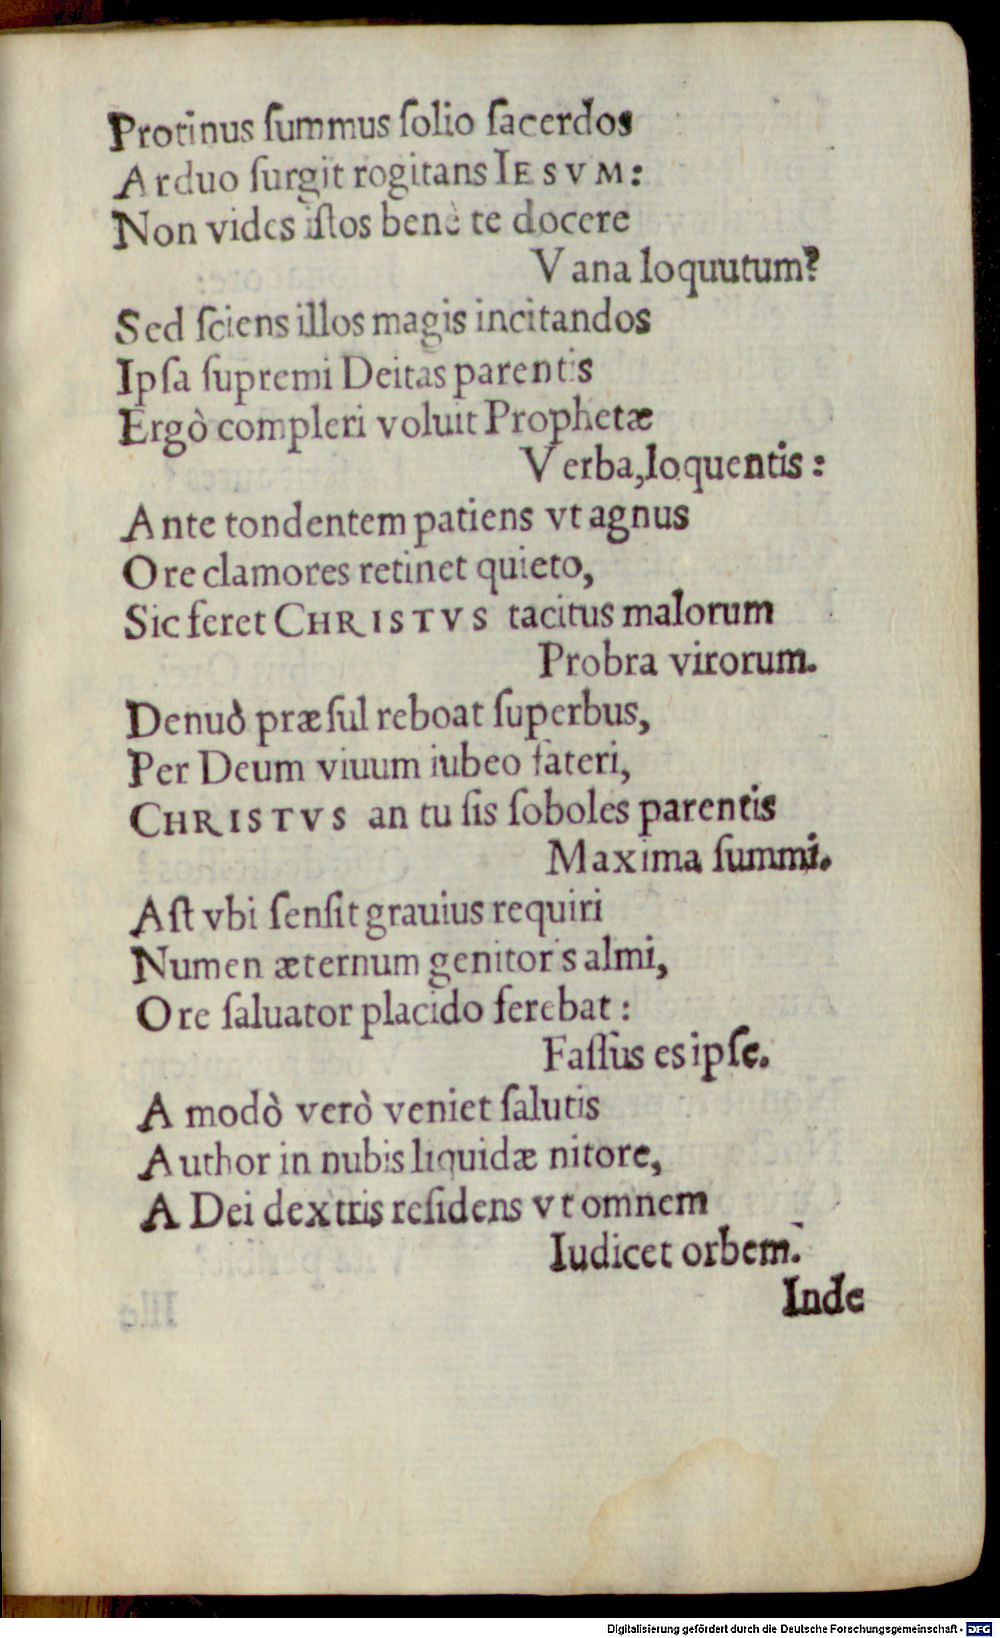 Protinus ſummus ſolio ſacerdos
Arduo ſurgit rogitans IESVM:
Non vides iſtos benè te docere
Vana loquutum?
Sed ſciens illos magis incitandos
Ipſa ſupremi Deitas parentis
Ergò compleri voluit Prophetæ
Verba, loquentis:
Ante tondentem patiens vt agnus
Ore clamores retinet quieto,
Sic feret CHRISTVS tacitus malorum
Probra virorum.
Denuò præſul reboat ſuperbus,
Per Deum viuum iubeo fateri,
CHRISTVS an tu ſis ſoboles parentis
Maxima ſummi.
Aſt vbi ſenſit grauius requiri
Numen æternum genitoris almi,
Ore ſaluator placido ferebat:
Faſſus es ipſe.
A modò verò veniet ſalutis
Author in nubis liquidæ nitore,
A Dei dextris reſidens vt omnem
Iudicet orbem.
Inde
Digitalisierung gefördert durch die Deutsche Forschungsgemeinschaft - DFG